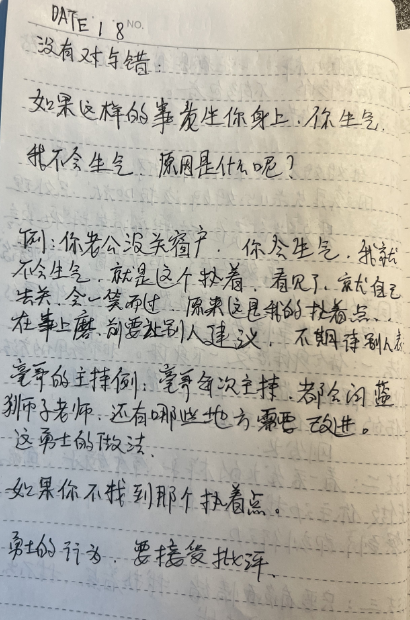 DATE 1 8 NO.
没有对与错:
如果这样的事发生你身上、你生气.
我不会生气、原因是什么呢？
例: 你老公没关窗户. 你会生气. 我就
不会生气、就是这个执着、看见了、就自己
去关、会一笑而过、原来这是我的执着点...
在事上磨 前要让别人建议、不期待别人
毫哥的主持例: 毫哥每次主持、都会问蓝
狮子老师、还有哪些地方需要改进。
这勇士的做法、
如果你不找到那个执着点。
勇士的行为、要接受批评、